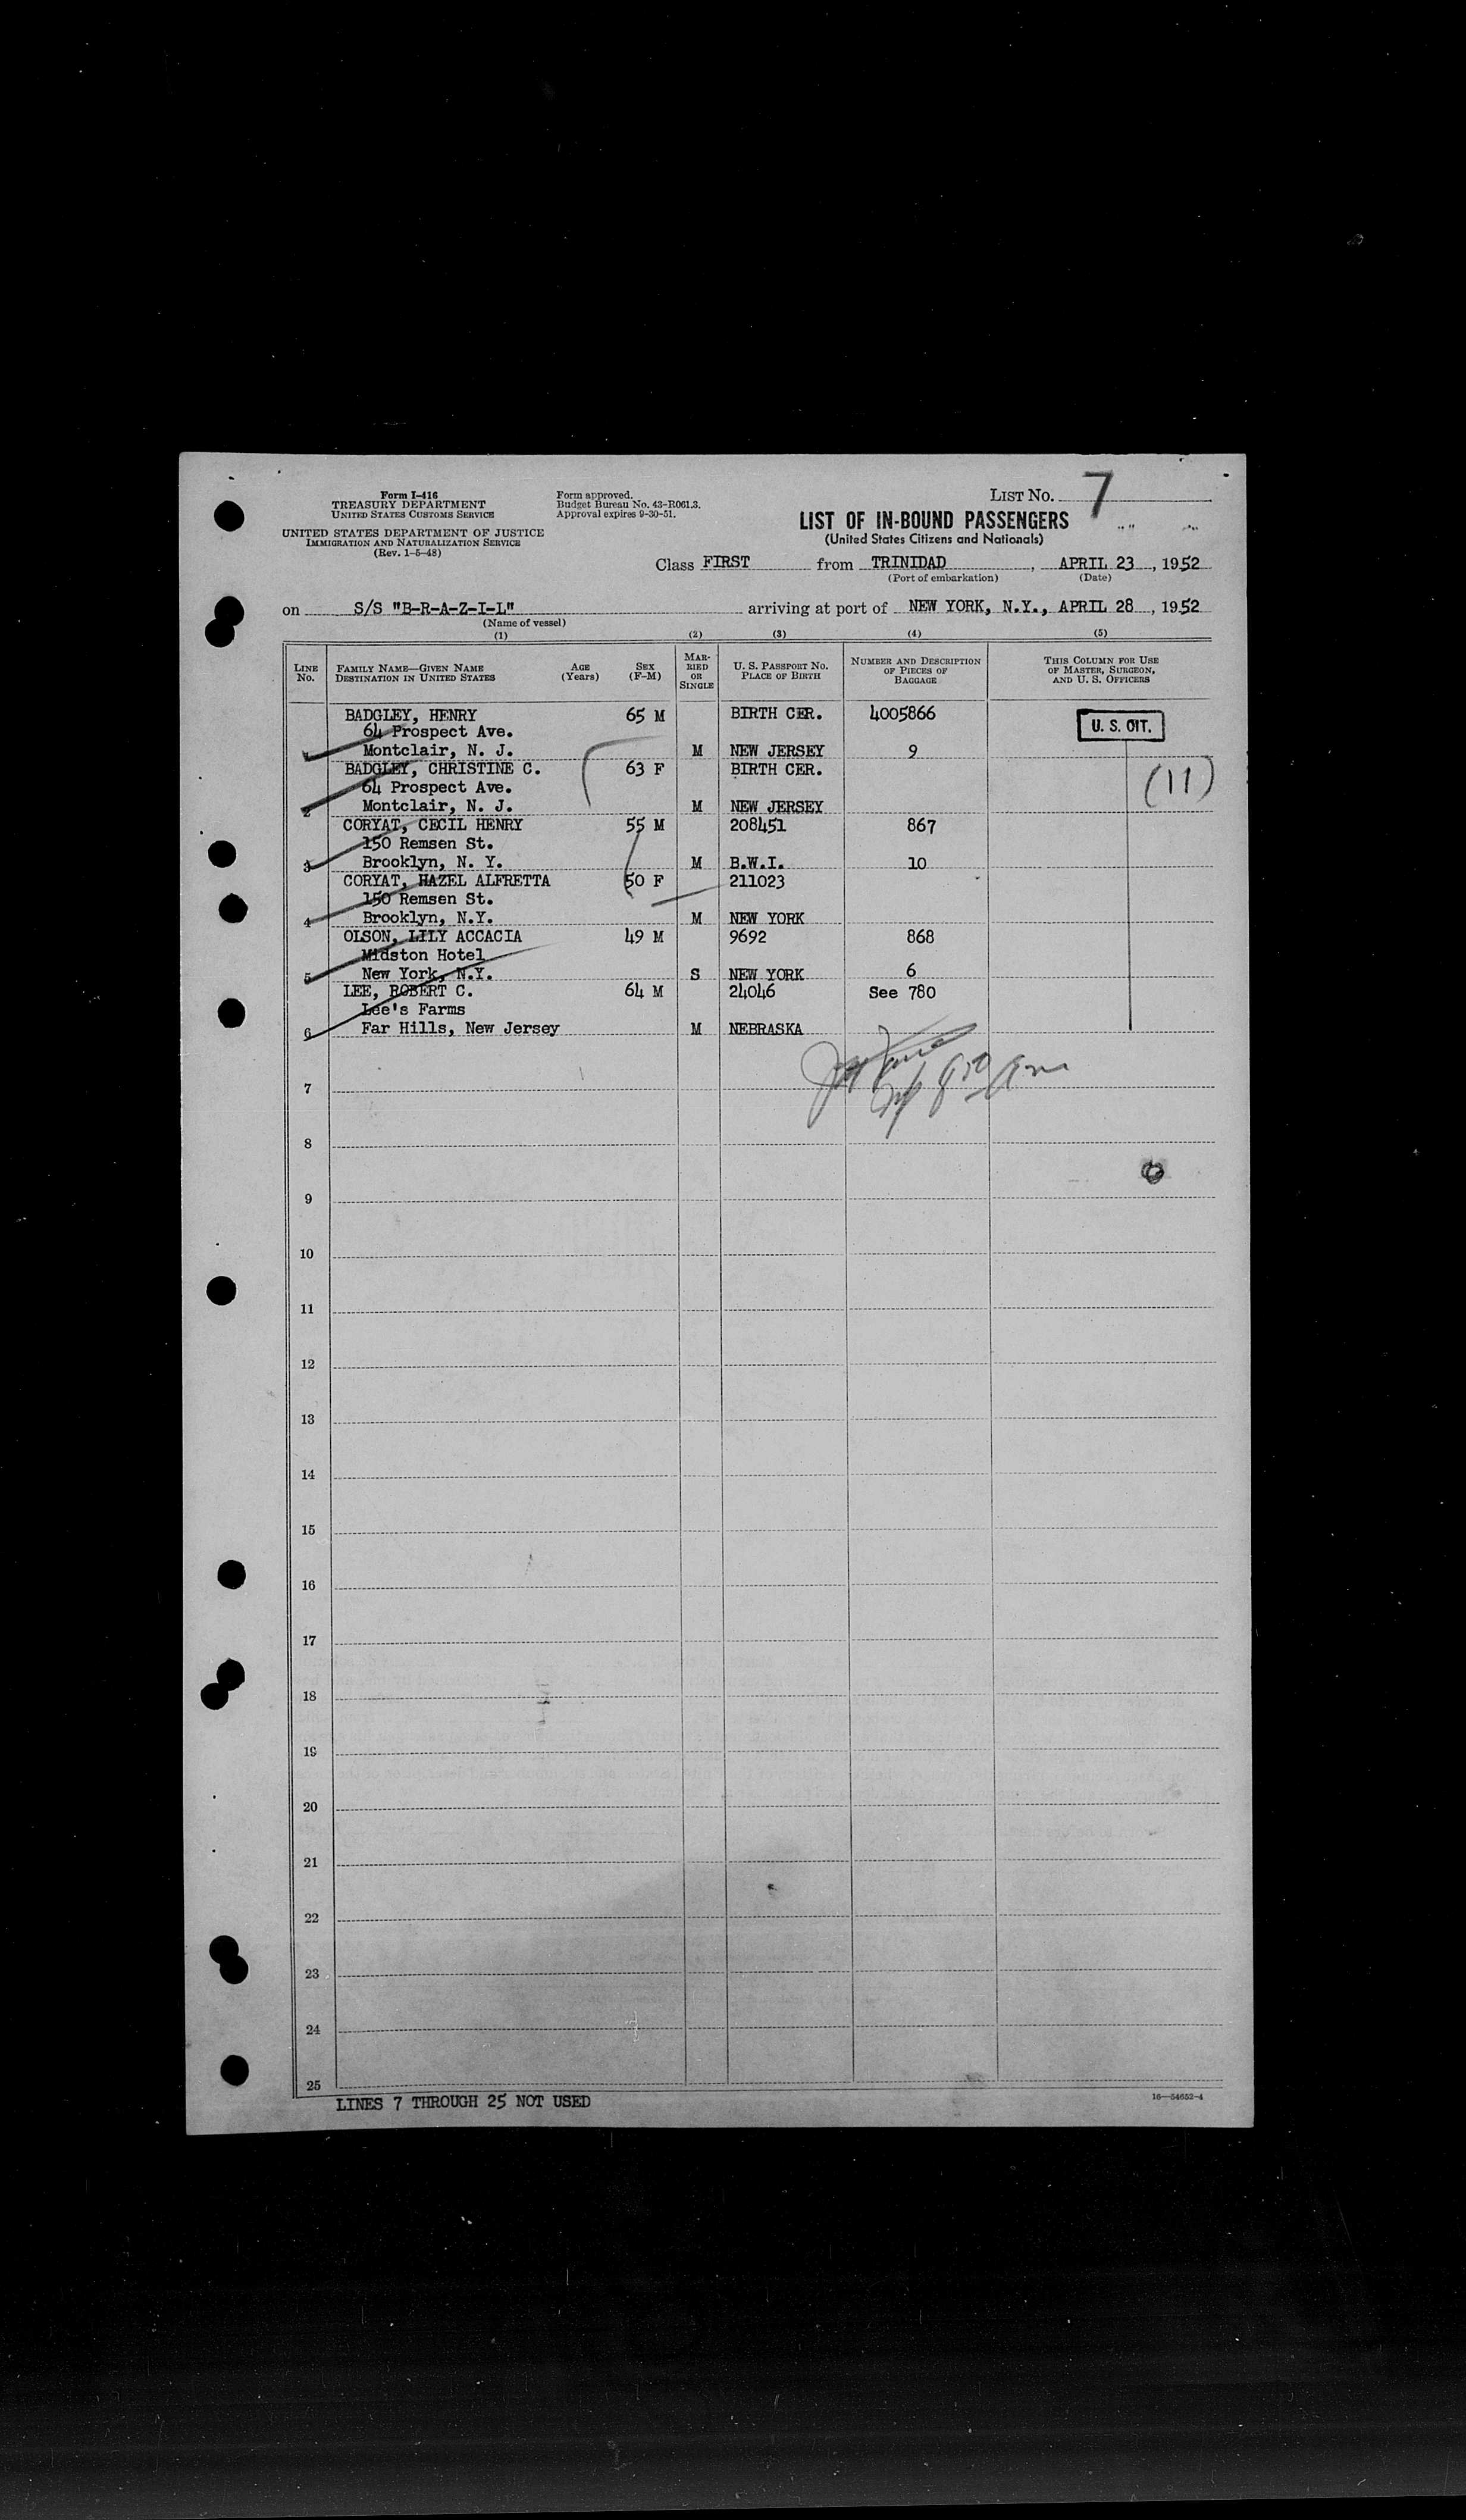 Form I-416
TREASURY DEPARTMENT
UNITED STATES CUSTOMS SERVICE
UNITED STATES DEPARTMENT OF JUSTICE
IMMIGRATION AND NATURALIZATION SERVICE
(Rev. 1-5-48)
Form approved.
Budget Bureau No. 43-R061.3.
Approval expires 9-30-51.
LIST NO. 7
LIST OF IN-BOUND PASSENGERS
(United States Citizens and Nationals)
Class FIRST from TRINIDAD, APRIL 23, 1952
(Port of embarkation) (Date)
on S/S "B-R-A-Z-I-L" arriving at port of NEW YORK, N.Y., APRIL 28, 1952
(Name of vessel)
(1) (2) (3) (4) (5)
LINE NO. FAMILY NAME—GIVEN NAME DESTINATION IN UNITED STATES AGE (Years) SEX (F-M) MARRIED OR SINGLE U. S. PASSPORT NO. PLACE OF BIRTH NUMBER AND DESCRIPTION OF PIECES OF BAGGAGE THIS COLUMN FOR USE OF MASTER, SURGEON, AND U. S. OFFICERS
BADGLEY, HENRY 65 M BIRTH CER. 4005866
64 Prospect Ave. U. S. CIT.
1 Montclair, N. J. M NEW JERSEY 9
BADGLEY, CHRISTINE C. 63 F BIRTH CER.
64 Prospect Ave. (11)
2 Montclair, N. J. M NEW JERSEY
CORYAT, CECIL HENRY 55 M 208451 867
150 Remsen St.
3 Brooklyn, N. Y. M B.W.I. 10
CORYAT, HAZEL ALFRETTA 50 F 211023
150 Remsen St.
4 Brooklyn, N.Y. M NEW YORK
OLSON, LILY ACCACIA 49 M 9692 868
Midston Hotel
5 New York, N.Y. S NEW YORK 6
LEE, ROBERT C. 64 M 24046 See 780
Lee's Farms
6 Far Hills, New Jersey M NEBRASKA
7
8
9
10
11
12
13
14
15
16
17
18
19
20
21
22
23
24
25
LINES 7 THROUGH 25 NOT USED
16—54652-4